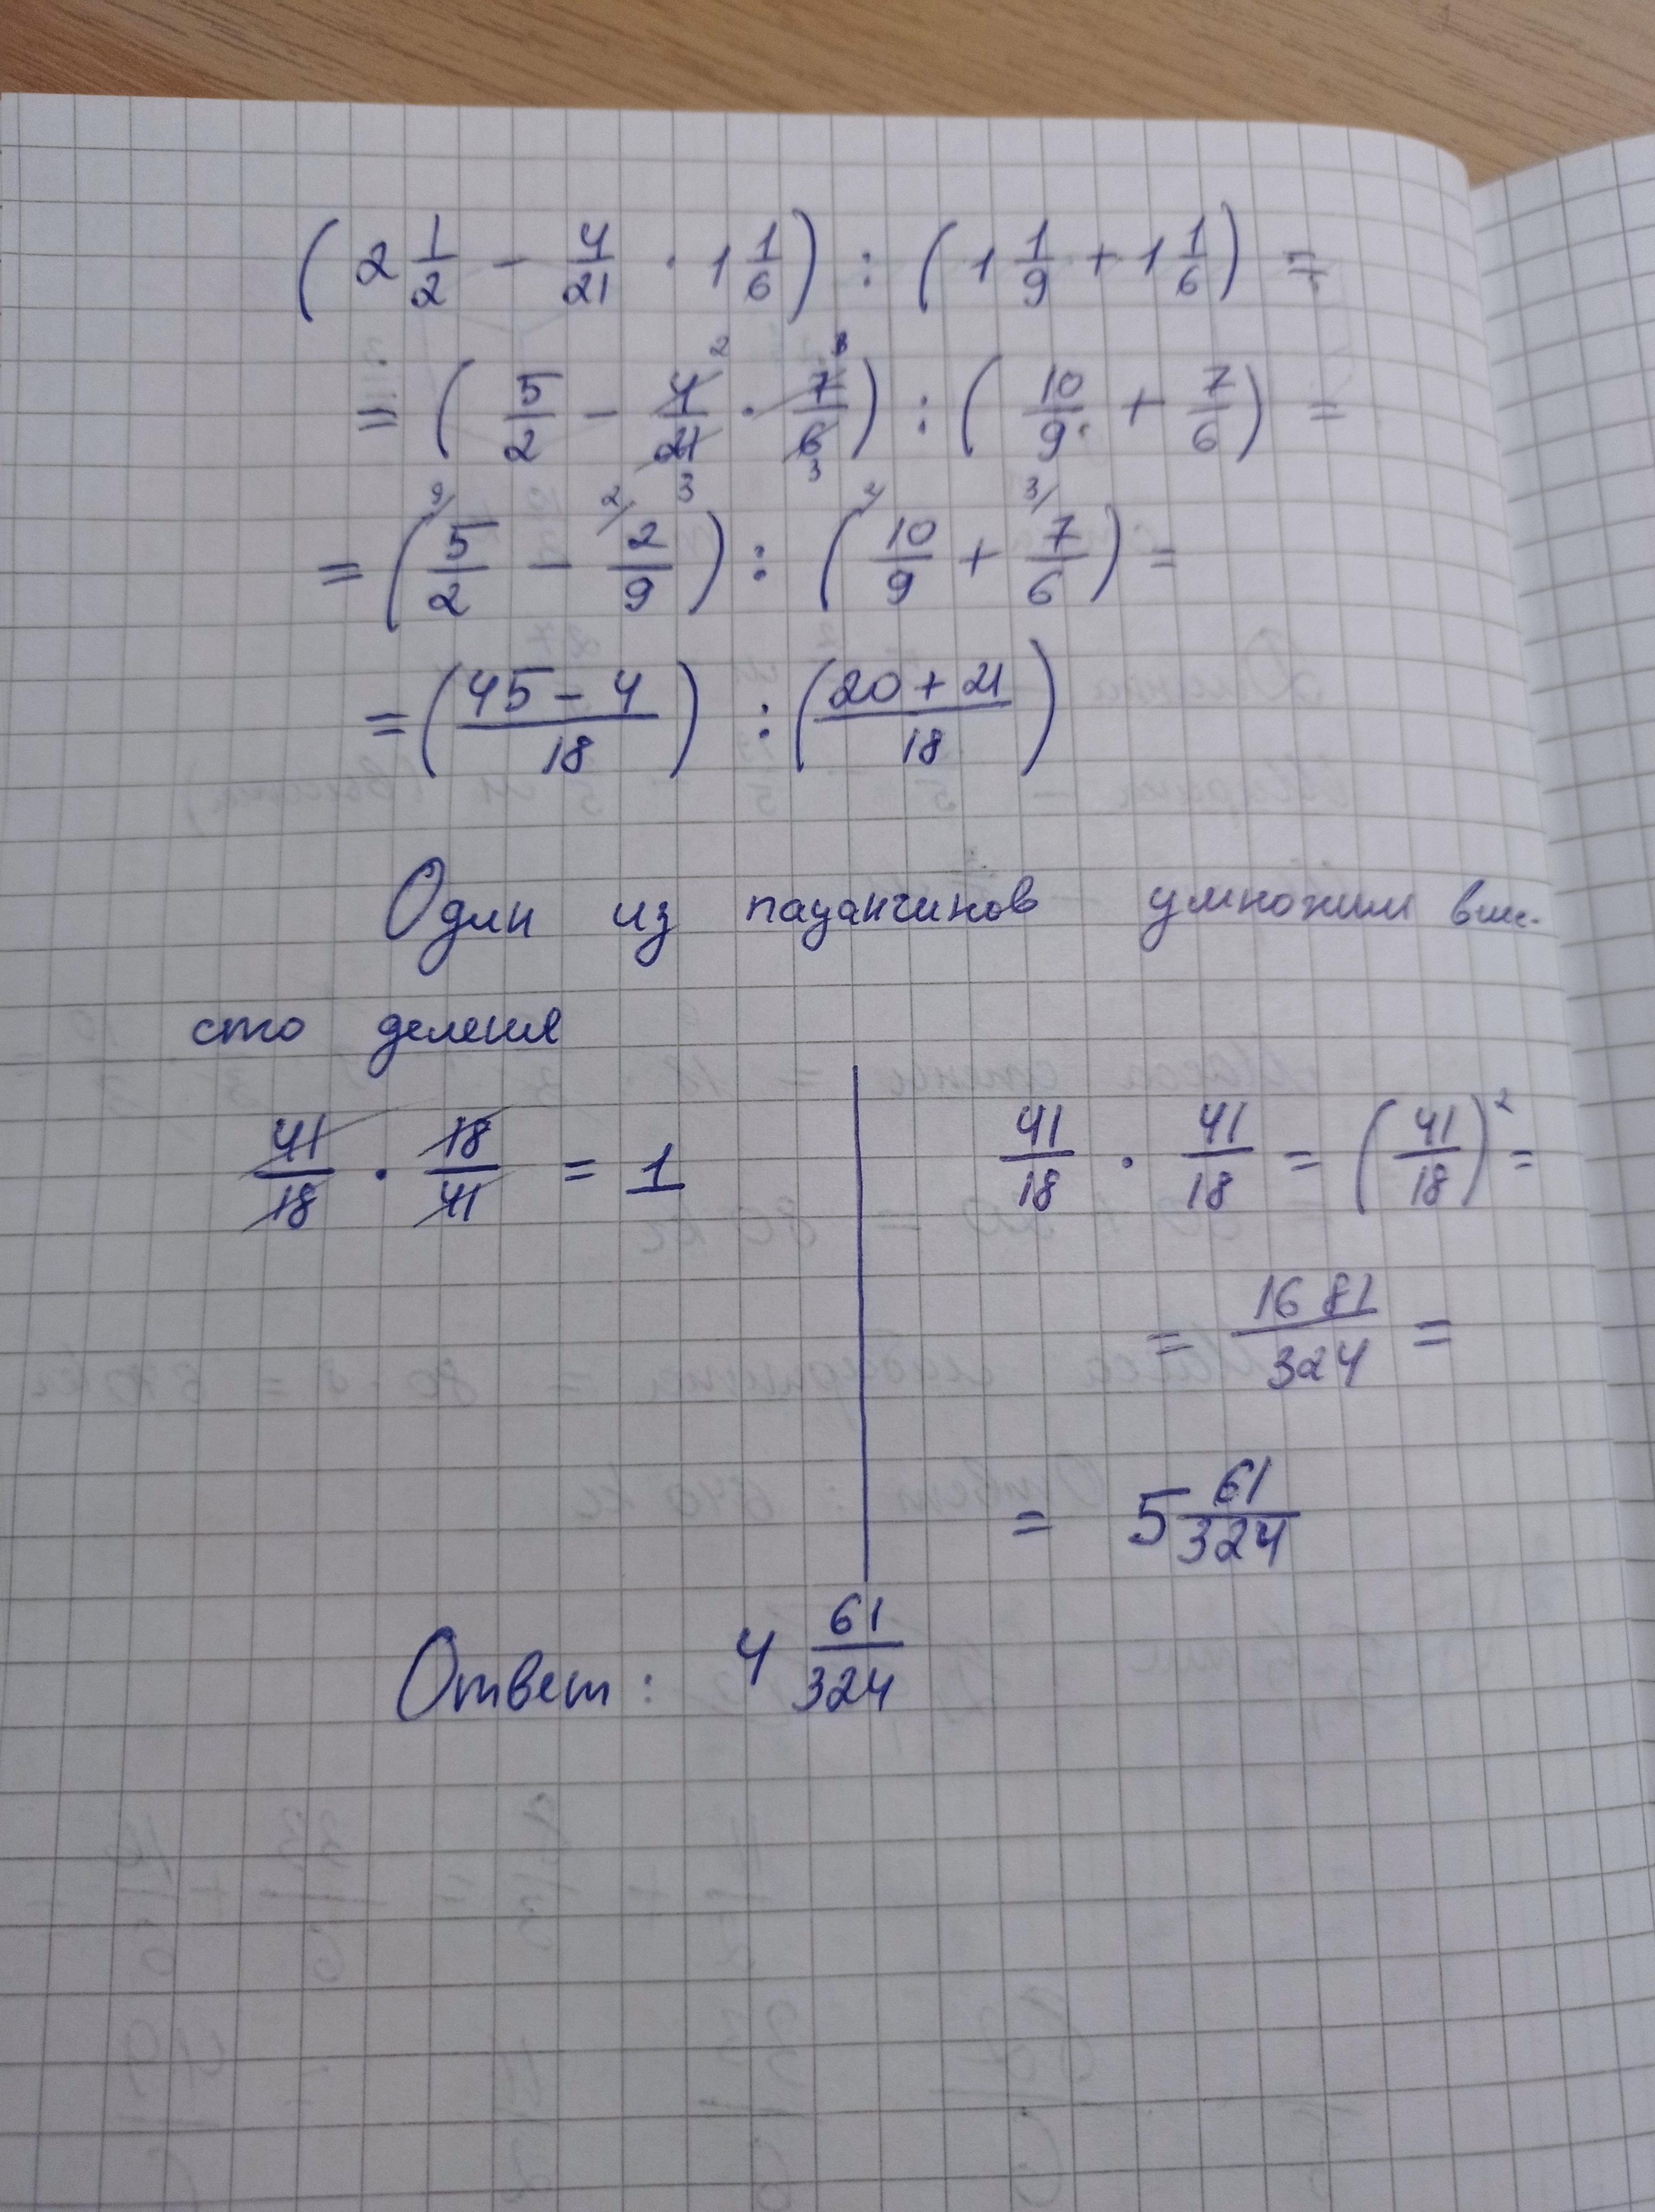 (2 1/2 - 4/21 · 1 1/6) : (1 1/9 + 1 1/6) =
= (5/2 - 4/21 · 7/6) : (10/9 + 7/6) =
= (5/2 - 2/9) : (10/9 + 7/6) =
= (45 - 4/18) : (20 + 21/18)
Один из пацанчинов умножил вме-
сто деления
41/18 · 18/41 = 1
41/18 · 41/18 = (41/18)² =
= 1681/324 =
= 5 61/324
Ответ: 4 61/324